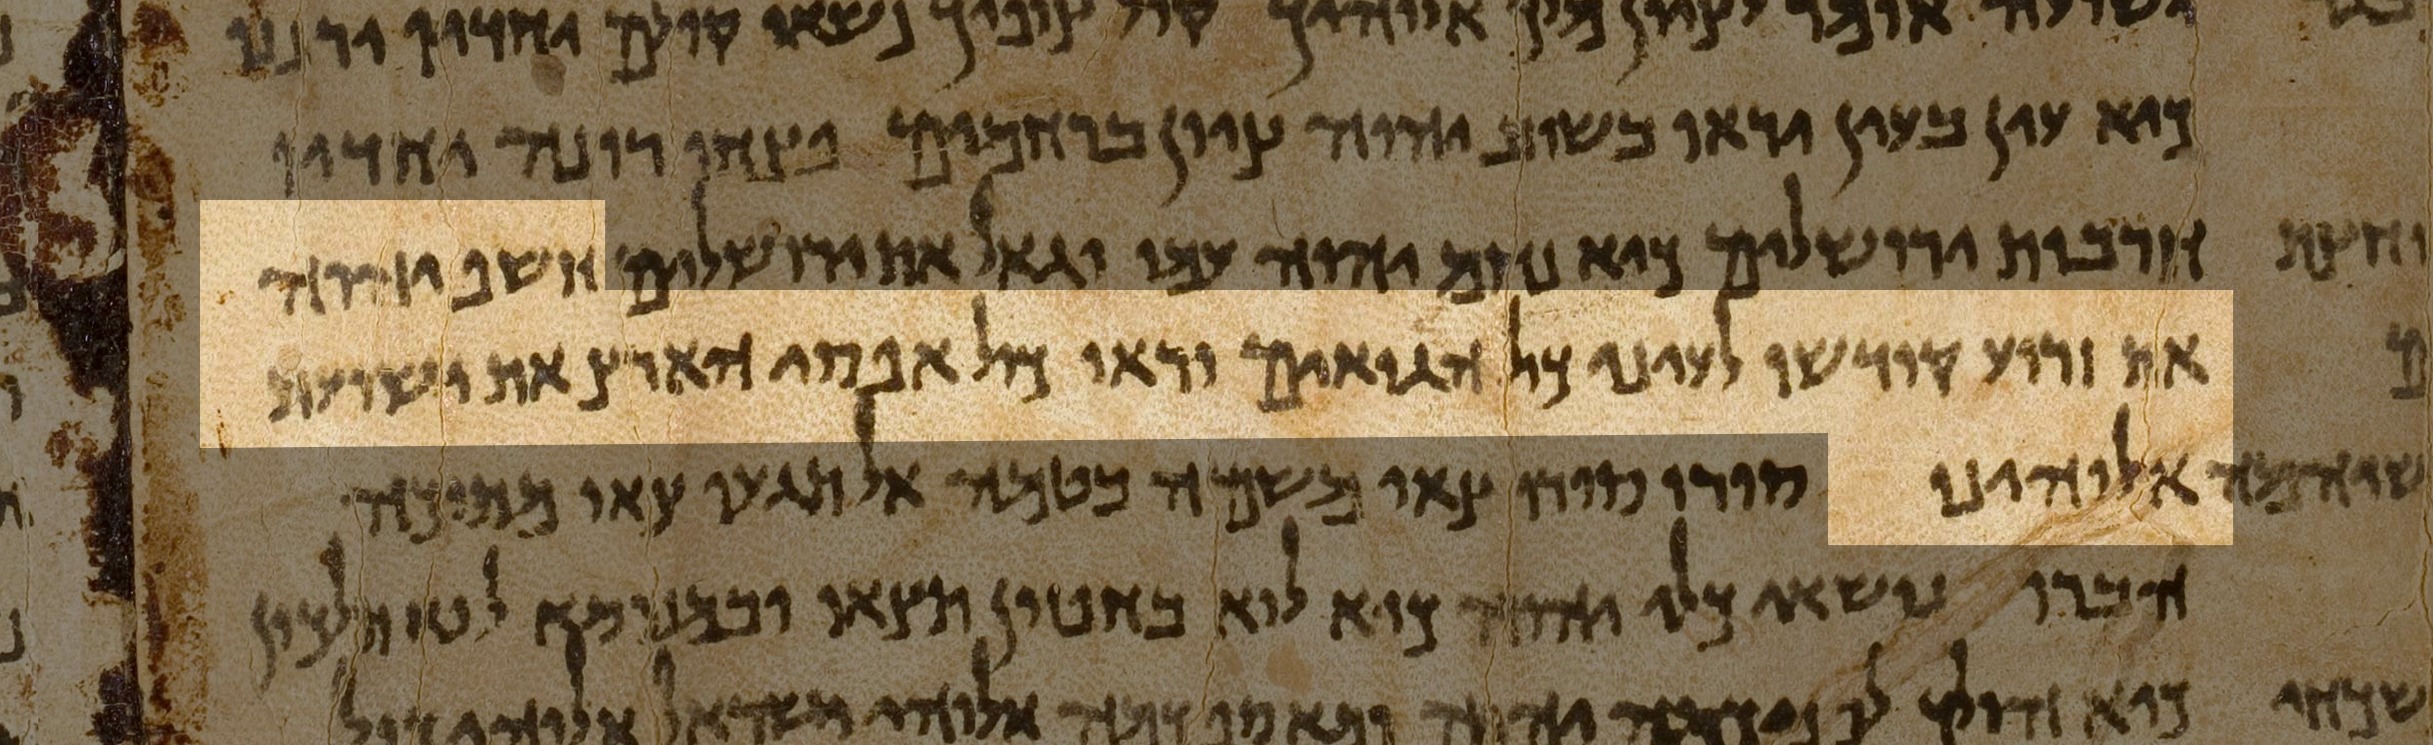 ישועה אומר לציון מלך אלוהיך קול צופיך נשאו קולם יחדיו ירננו
כיא עין בעין יראו בשוב יהוה ציון ברחמים פצחו רונה יחדיו
חרבות ירושלים כיא נחם יהוה עמו וגאל את ירושלים חשף יהוה
את זרוע קודשו לעיני כול הגואים וראו כול אפסי הארץ את ישועת
אלוהינו סורו סורו צאו משמה בטמה אל תגעו צאו מתוכה
הברו נושאי כלי יהוה כיא לוא בחפזון תצאו
כיא הולך יהוה אלוהי ישראל